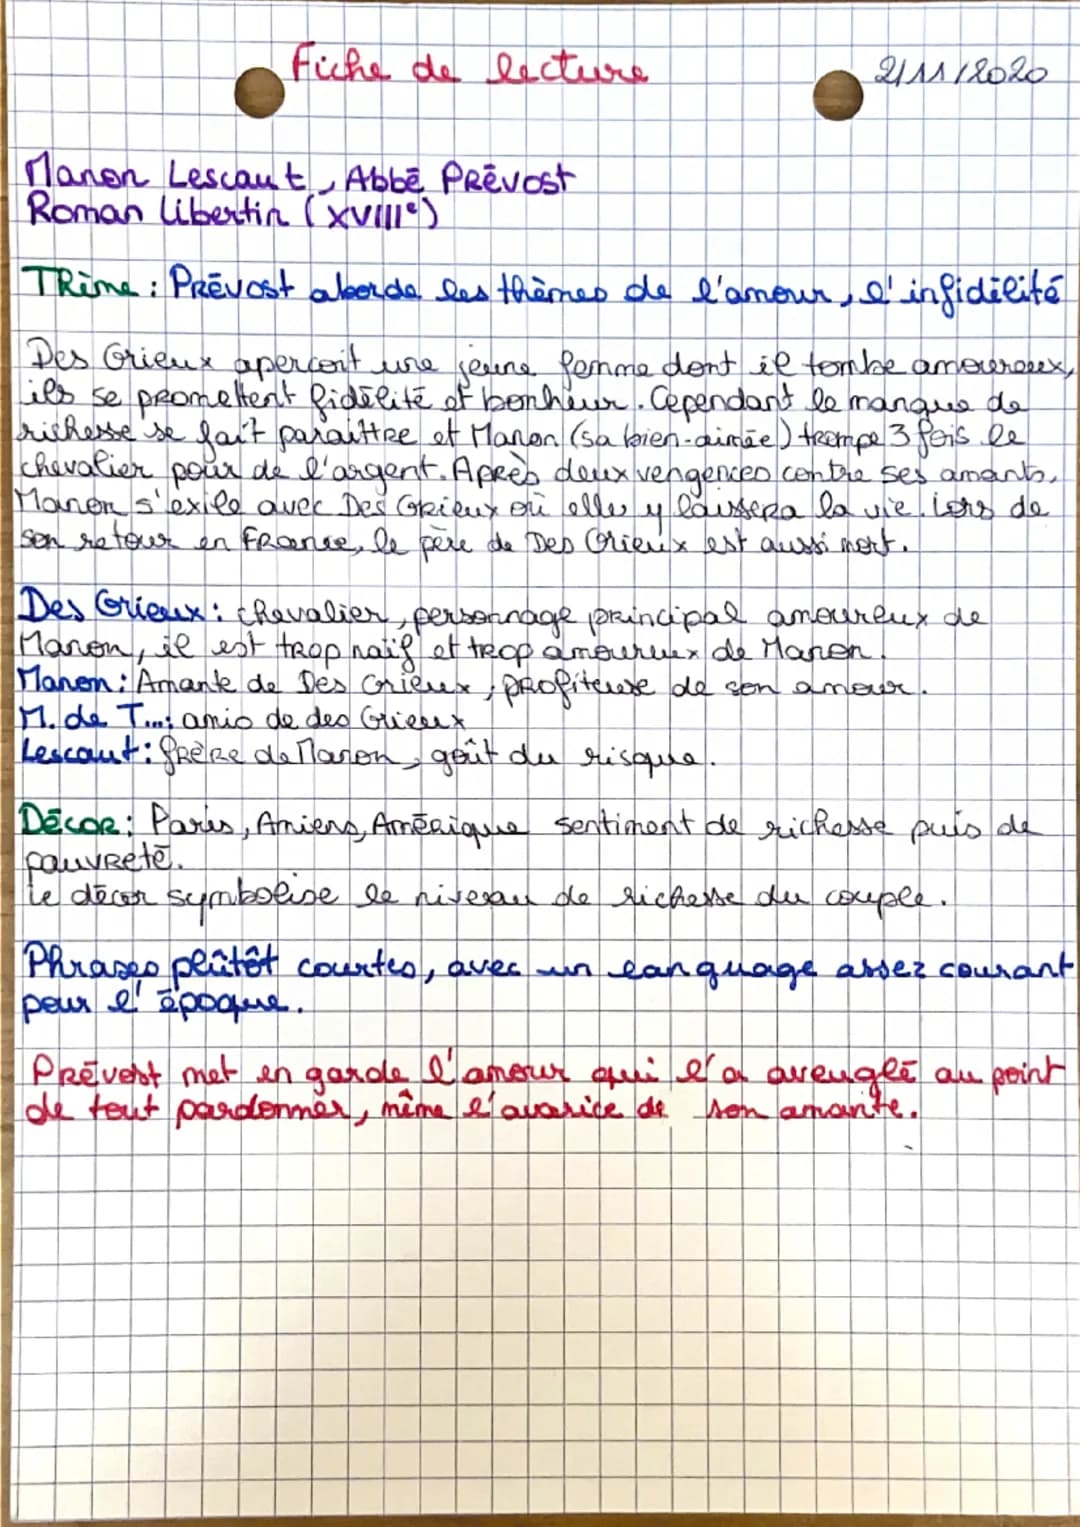 Fiche de lecture
2/11/2020
Manon Lescaut, Abbé Prévost
Roman libertin (XVIIIe)
Thème : Prévost aborde les thèmes de l'amour, l'infidélité
Des Grieux aperçoit une jeune femme dont il tombe amoureux,
ils se promettent fidélité et bonheur. Cependant le manque de
richesse se fait paraittre et Manon (sa bien-aimée) trompe 3 fois le
chevalier pour de l'argent. Après deux vengences contre ses amants,
Manon s'exile avec Des Grieux où elle y laissera la vie. Lors de
son retour en France, le père de Des Grieux est aussi mort.
Des Grieux : chevalier, personnage principal amoureux de
Manon, il est trop naïf et trop amoureux de Manon.
Manon : Amante de Des Grieux, profiteuse de son amour.
M. de T... : amis de des Grieux
Lescaut : frère de Manon, goût du risque.
Décor : Paris, Amiens, Amérique sentiment de richesse puis de
pauvreté.
Le décor symbolise le niveau de richesse du couple.
Phrases plûtôt courtes, avec un language assez courant
pour l'époque.
Prévost met en garde l'amour qui l'a aveuglé au point
de tout pardonner, même l'avarice de son amante.